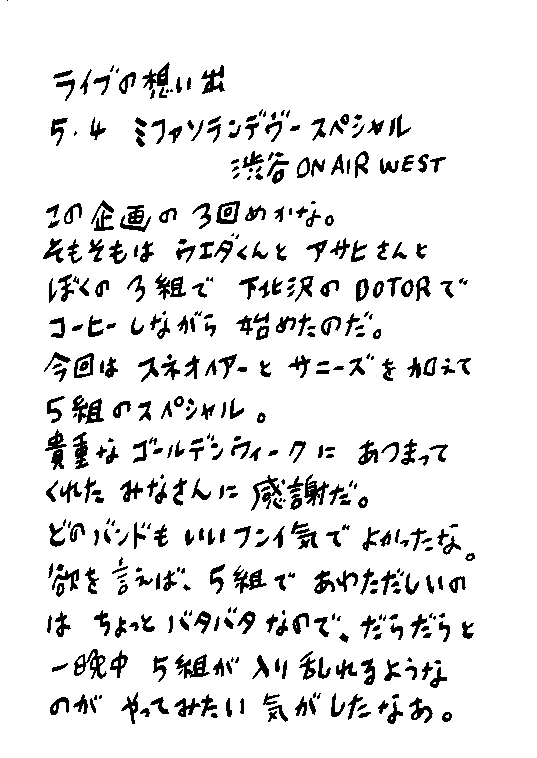 ライブの想い出
5.4 ミファソランデヴースペシャル
渋谷 ON AIR WEST
この企画の3回めかな。
そもそもは ウエダくんと アサヒさんと
ぼくの 3組で 下北沢の DOTORで
コーヒーしながら 始めたのだ。
今回は スネオヘアーと サニーズを加えて
5組のスペシャル。
貴重な ゴールデンウィークに あつまって
くれた みなさんに 感謝だ。
どのバンドも いいフンイ気で よかったな。
欲を言えば、5組で あわただしいの
は ちょっと バタバタなので、だらだらと
一晩中 5組が 入り乱れるような
のが やってみたい 気がしたなあ。